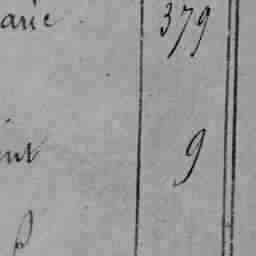 arie 379
ent 9